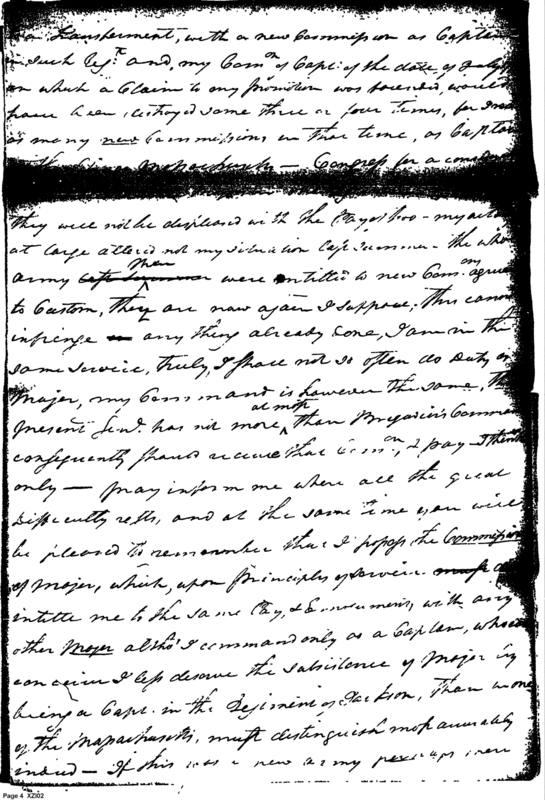 Transherment, with a new Commission as Captain
in such Regt and, my Comn of Capt: of the date of July
on which a Claim to my promotion was
have been destroyed some three or four times, for I
as many new Commissions in that time, as Captain
Massachusetts — Congress for a
they will not be displeased with the
at large altered not my situation last Summer - the whole
army then were entitled to new Comns agree
to Custom, they are now again I suppose, this cannot
infringe any thing already done, I am in the
same service, truly, I shall not so often do duty as
Major, my Command is however the same, the
present Genl. has not more at most than Brigadier's Command
consequently should receive that Comn, & pay I think
only — pray inform me where all the great
difficulty rests, and at the same time you will
be pleased to remember that I possess the Commission
of Major, which, upon Principles of service
intitle me to the same Pay, & Emoluments, with any
other Major altho' I command only as a Captain, who
conceive I less deserve the subsistence of Major by
being a Capt. in the Regiment of Jackson, than in one
of the Massachusetts, must distinguish most accurately
indeed — If this was a new army perhaps were
Page 4 XZI02